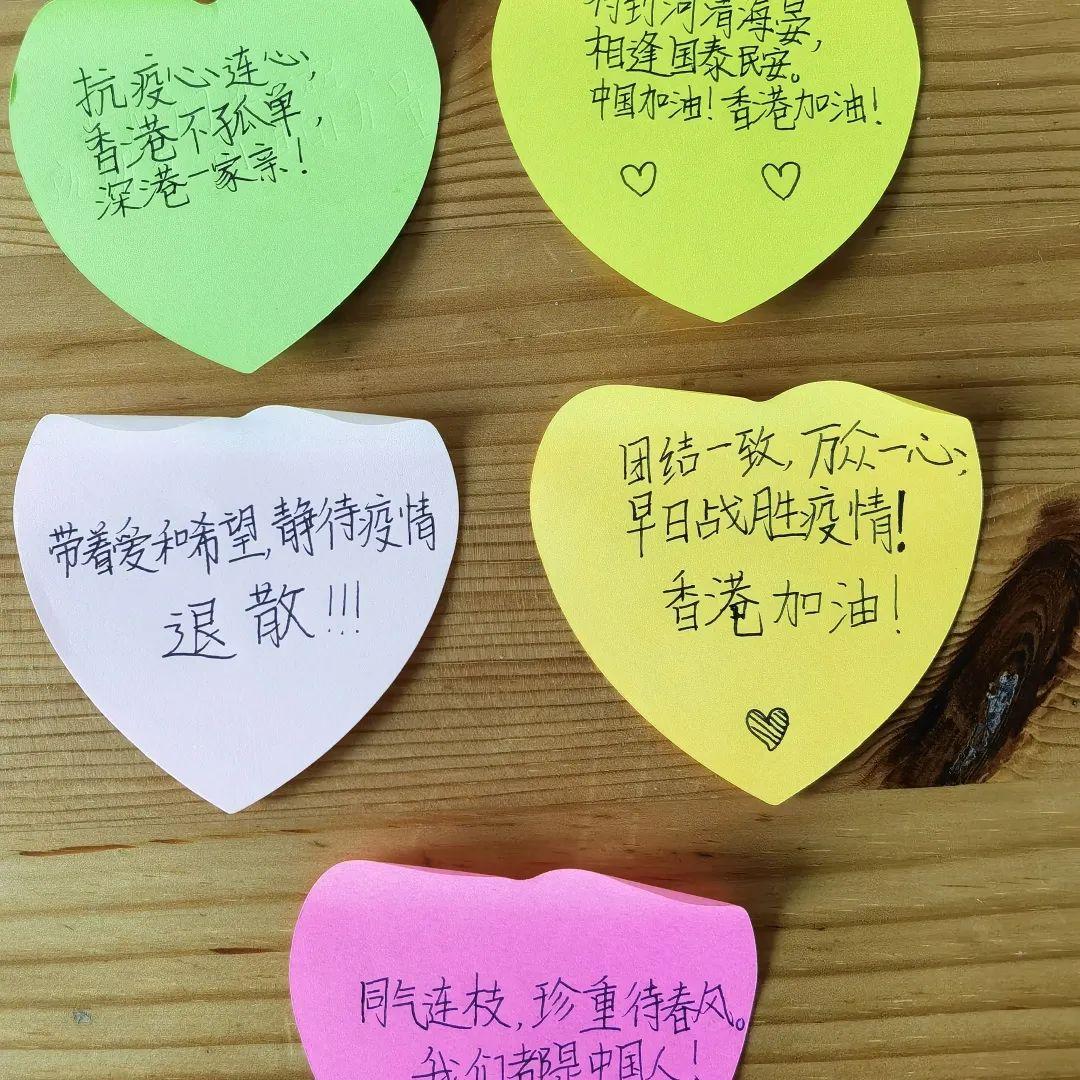 抗疫心连心,
香港不孤单,
深港一家亲!
待到河清海晏,
相逢国泰民安。
中国加油!香港加油!
带着爱和希望,静待疫情
退散!!!
团结一致,万众一心,
早日战胜疫情!
香港加油!
同气连枝,珍重待春风。
我们都是中国人!